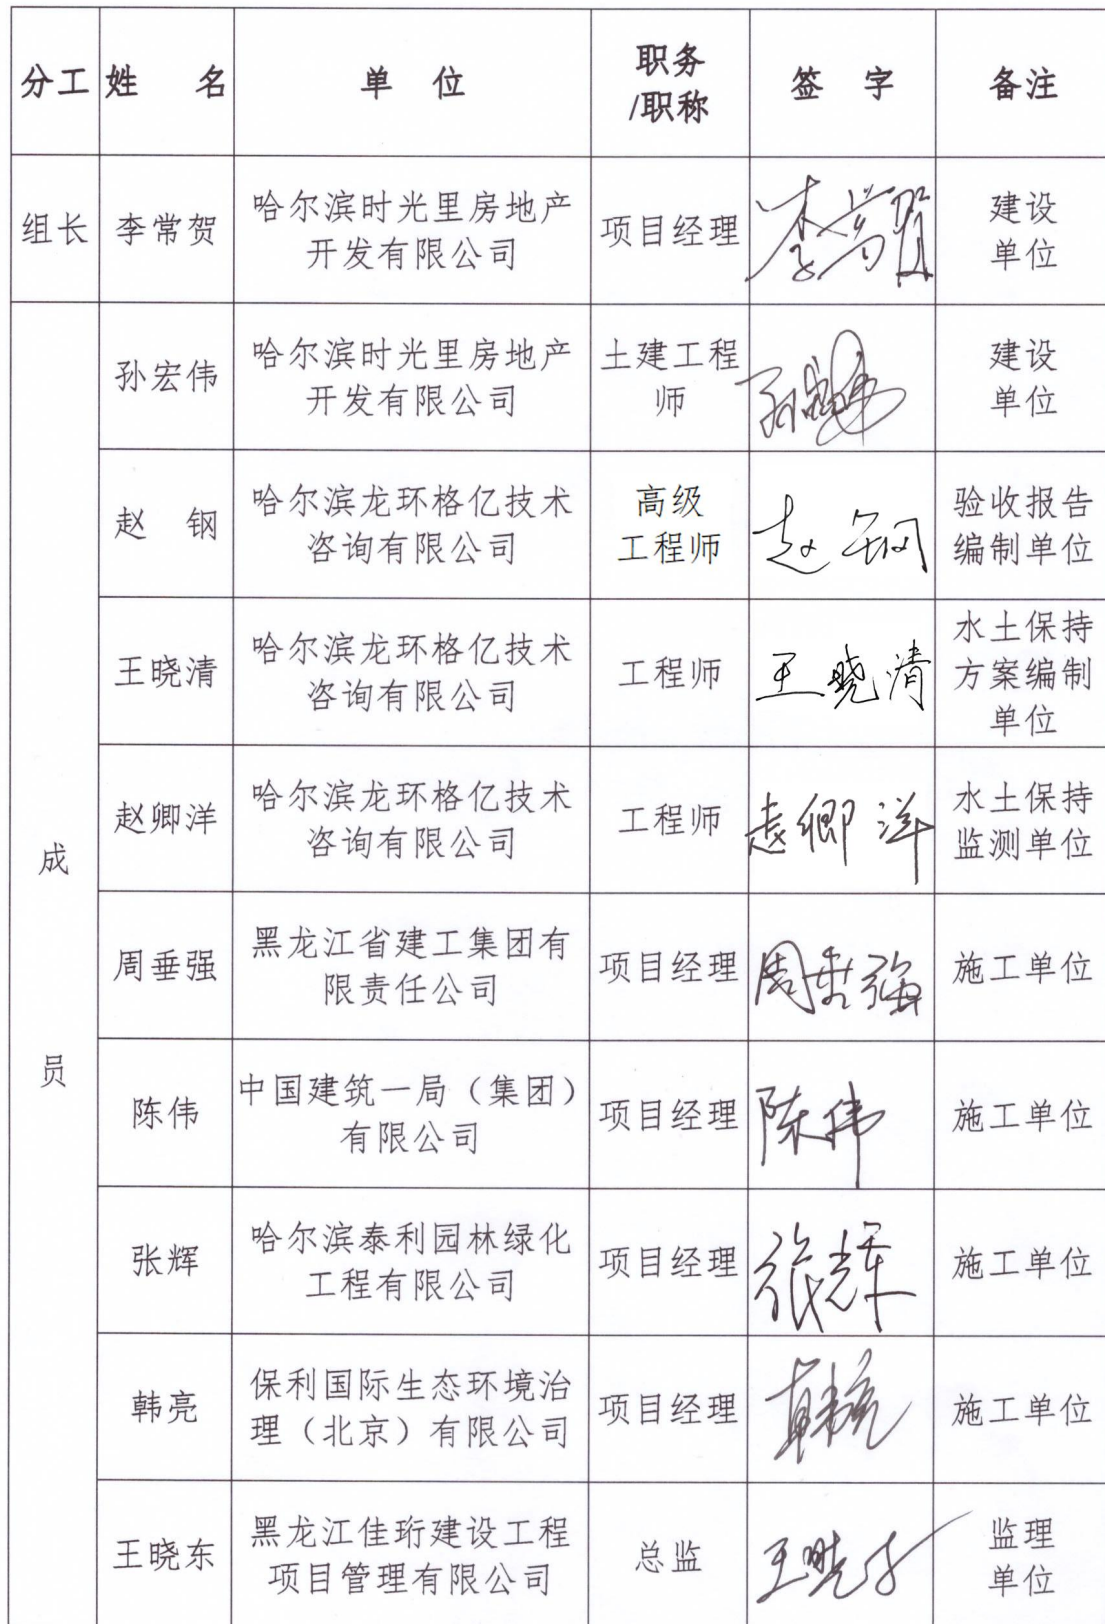 分工 姓 名 单 位 职务 /职称 签 字 备注
组长 李常贺 哈尔滨时光里房地产 开发有限公司 项目经理 李常贺 建设 单位
成 员
孙宏伟 哈尔滨时光里房地产 开发有限公司 土建工程 师 孙宏伟 建设 单位
赵 钢 哈尔滨龙环格亿技术 咨询有限公司 高级 工程师 赵钢 验收报告 编制单位
王晓清 哈尔滨龙环格亿技术 咨询有限公司 工程师 王晓清 水土保持 方案编制 单位
赵卿洋 哈尔滨龙环格亿技术 咨询有限公司 工程师 赵卿洋 水土保持 监测单位
周垂强 黑龙江省建工集团有 限责任公司 项目经理 周垂强 施工单位
陈伟 中国建筑一局（集团） 有限公司 项目经理 陈伟 施工单位
张辉 哈尔滨泰利园林绿化 工程有限公司 项目经理 张辉 施工单位
韩亮 保利国际生态环境治 理（北京）有限公司 项目经理 韩亮 施工单位
王晓东 黑龙江佳珩建设工程 项目管理有限公司 总监 王晓东 监理 单位